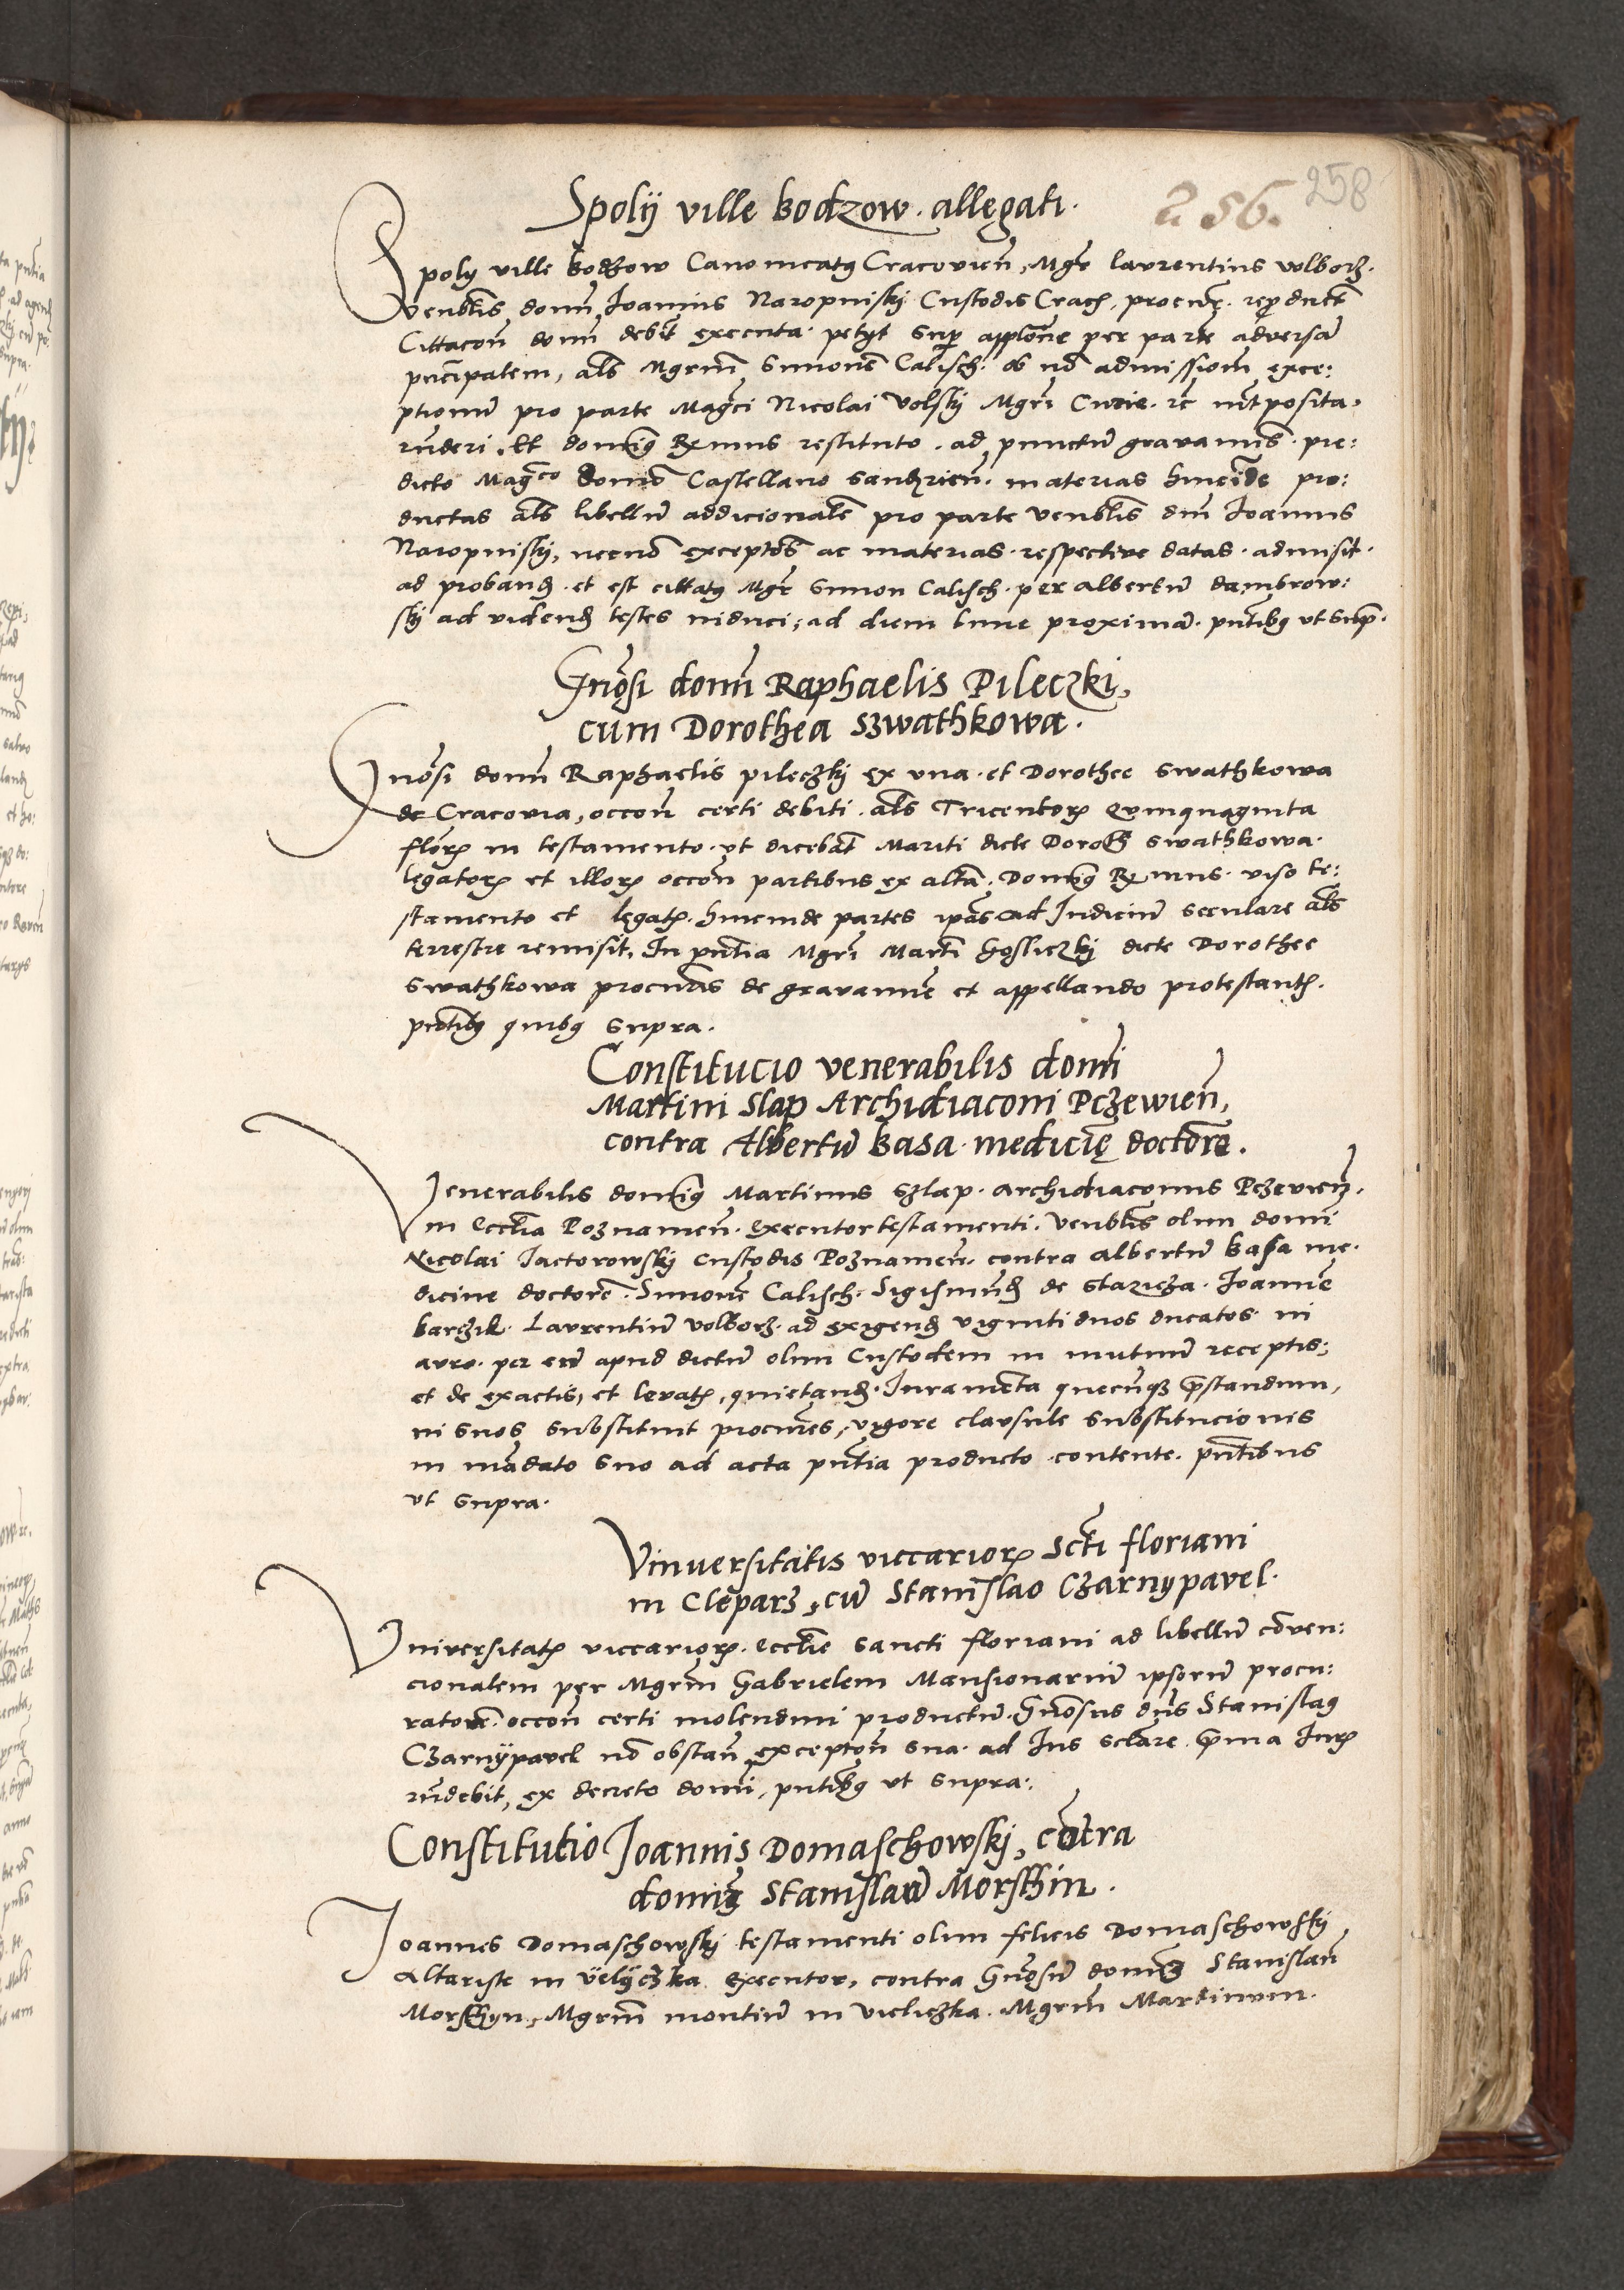 258
256.
Spolij ville kodzow. allegati.
Spolij ville kodzow Canonicatq Cracovien̄, Mgr Laurentius volborz.
venblis domī Joannis Naropniskj Custodis Crac̄, procur̄. reproducta
Cittacon̄ domī debit executa. petyt sup applōne per parte adversā
principalem, als Mgrm̄ Simonē Calisch. ob nō admissionē exce:
ptionū pro parte Magci Nicolai Volskj Mgri Curie. rc intposita.
rn̄deri. Et dominq Rxmus restituto. ad punctū gravaminis. pre:
dicto Magco domō Castellano Sandzrien̄. materias hincīde pro:
ductas als libellū addicionalē pro parte venblis dm̄ Joannis
Naropniskj, necnō exceptōs ac materias. respective datas. admisit.
ad proband. et est cittatq Mgr Simon Calisch. per albertū dambrow:
skj ad vidend testes induci, ad diem lune proximā. pn̄tibq ut supra.
Gnōsi domī Raphaelis Pileczki,
cum Dorothea szwathkowa.
Gnōsi domī Raphaelis pileczkj ex una. et Dorothee swathkowa
de Cracovia, occon̄ certi debiti. als Tricentor̄ Quinquaginta
flōr̄ in testamento. ut dicebat Mariti dicte Doroth swathkowa.
legator̄ et illor̄ occon̄ partibus ex altā. Dominq Rxmus. viso te:
stamento et legat̄. hincinde partes ip̄as ad Judiciū seculare als
terrestre remisit, In pn̄tia Mgri Marti Gosliczkj dicte Dorothee
Swathkowa procur̄is de gravamine et appellando protestant̄.
pn̄tibq quibq supra.
Constitucio venerabilis domī
Martini Slap Archidiaconi Pczewien̄,
contra Albertū kasa medicinę doctorē.
Venerabilis dominq Martinus Szlap. archidiaconus Pczevien̄.
in Ecclia Poznamen̄. executor testamenti. venblis olim domī
Nicolai Jactorowskj custodis Poznamen̄. contra albertū kasa me.
dicine doctorē. Simonē Calisch. Sigismūd de Starzicza. Joannē
barczik. Laurentiū volborz. ad exigend viginti duos ducatos in
auro. per eū apud dictū olim Custodem in mutuū receptis;
et de exactis, et levat̄, quietand. Juramēta quecūqz pstandum,
in suos substituit procur̄es, vigore clausule substitucionis
in mādato suo ad acta pn̄tia producto contente. pn̄tibus
ut supra.
Vniversitatis viccarior̄ Scti floriani
in Clepars, cū Stanislao Czarnypavel.
Vniversitat̄ viccarior̄. Ecclie sancti floriani ad libellū cōven:
cionalem per Mgrm̄ Gabrielem Mansionariū ipsorū procu:
ratorē. occon̄ certi molendini productū. Gnōsus dn̄s Stanislaq
Czarnÿpavel nō obstan̄ excepton̄ sua. ad Jus sclāre prima Jur̄
rn̄debit, ex decreto domī, pn̄tibq ut supra.
Constitutio Joannis Domaschowskj, cōtra
dominū Stanislaū Morschin.
Joannes Domaschowskj testamenti olim felicis Domaschowskj
altariste in vëlÿczka executor, contra Gnōsū dominū Stanislaū
Morschyn, Mgrm̄ montiū in vieliczka. Mgrm̄ Martinum.